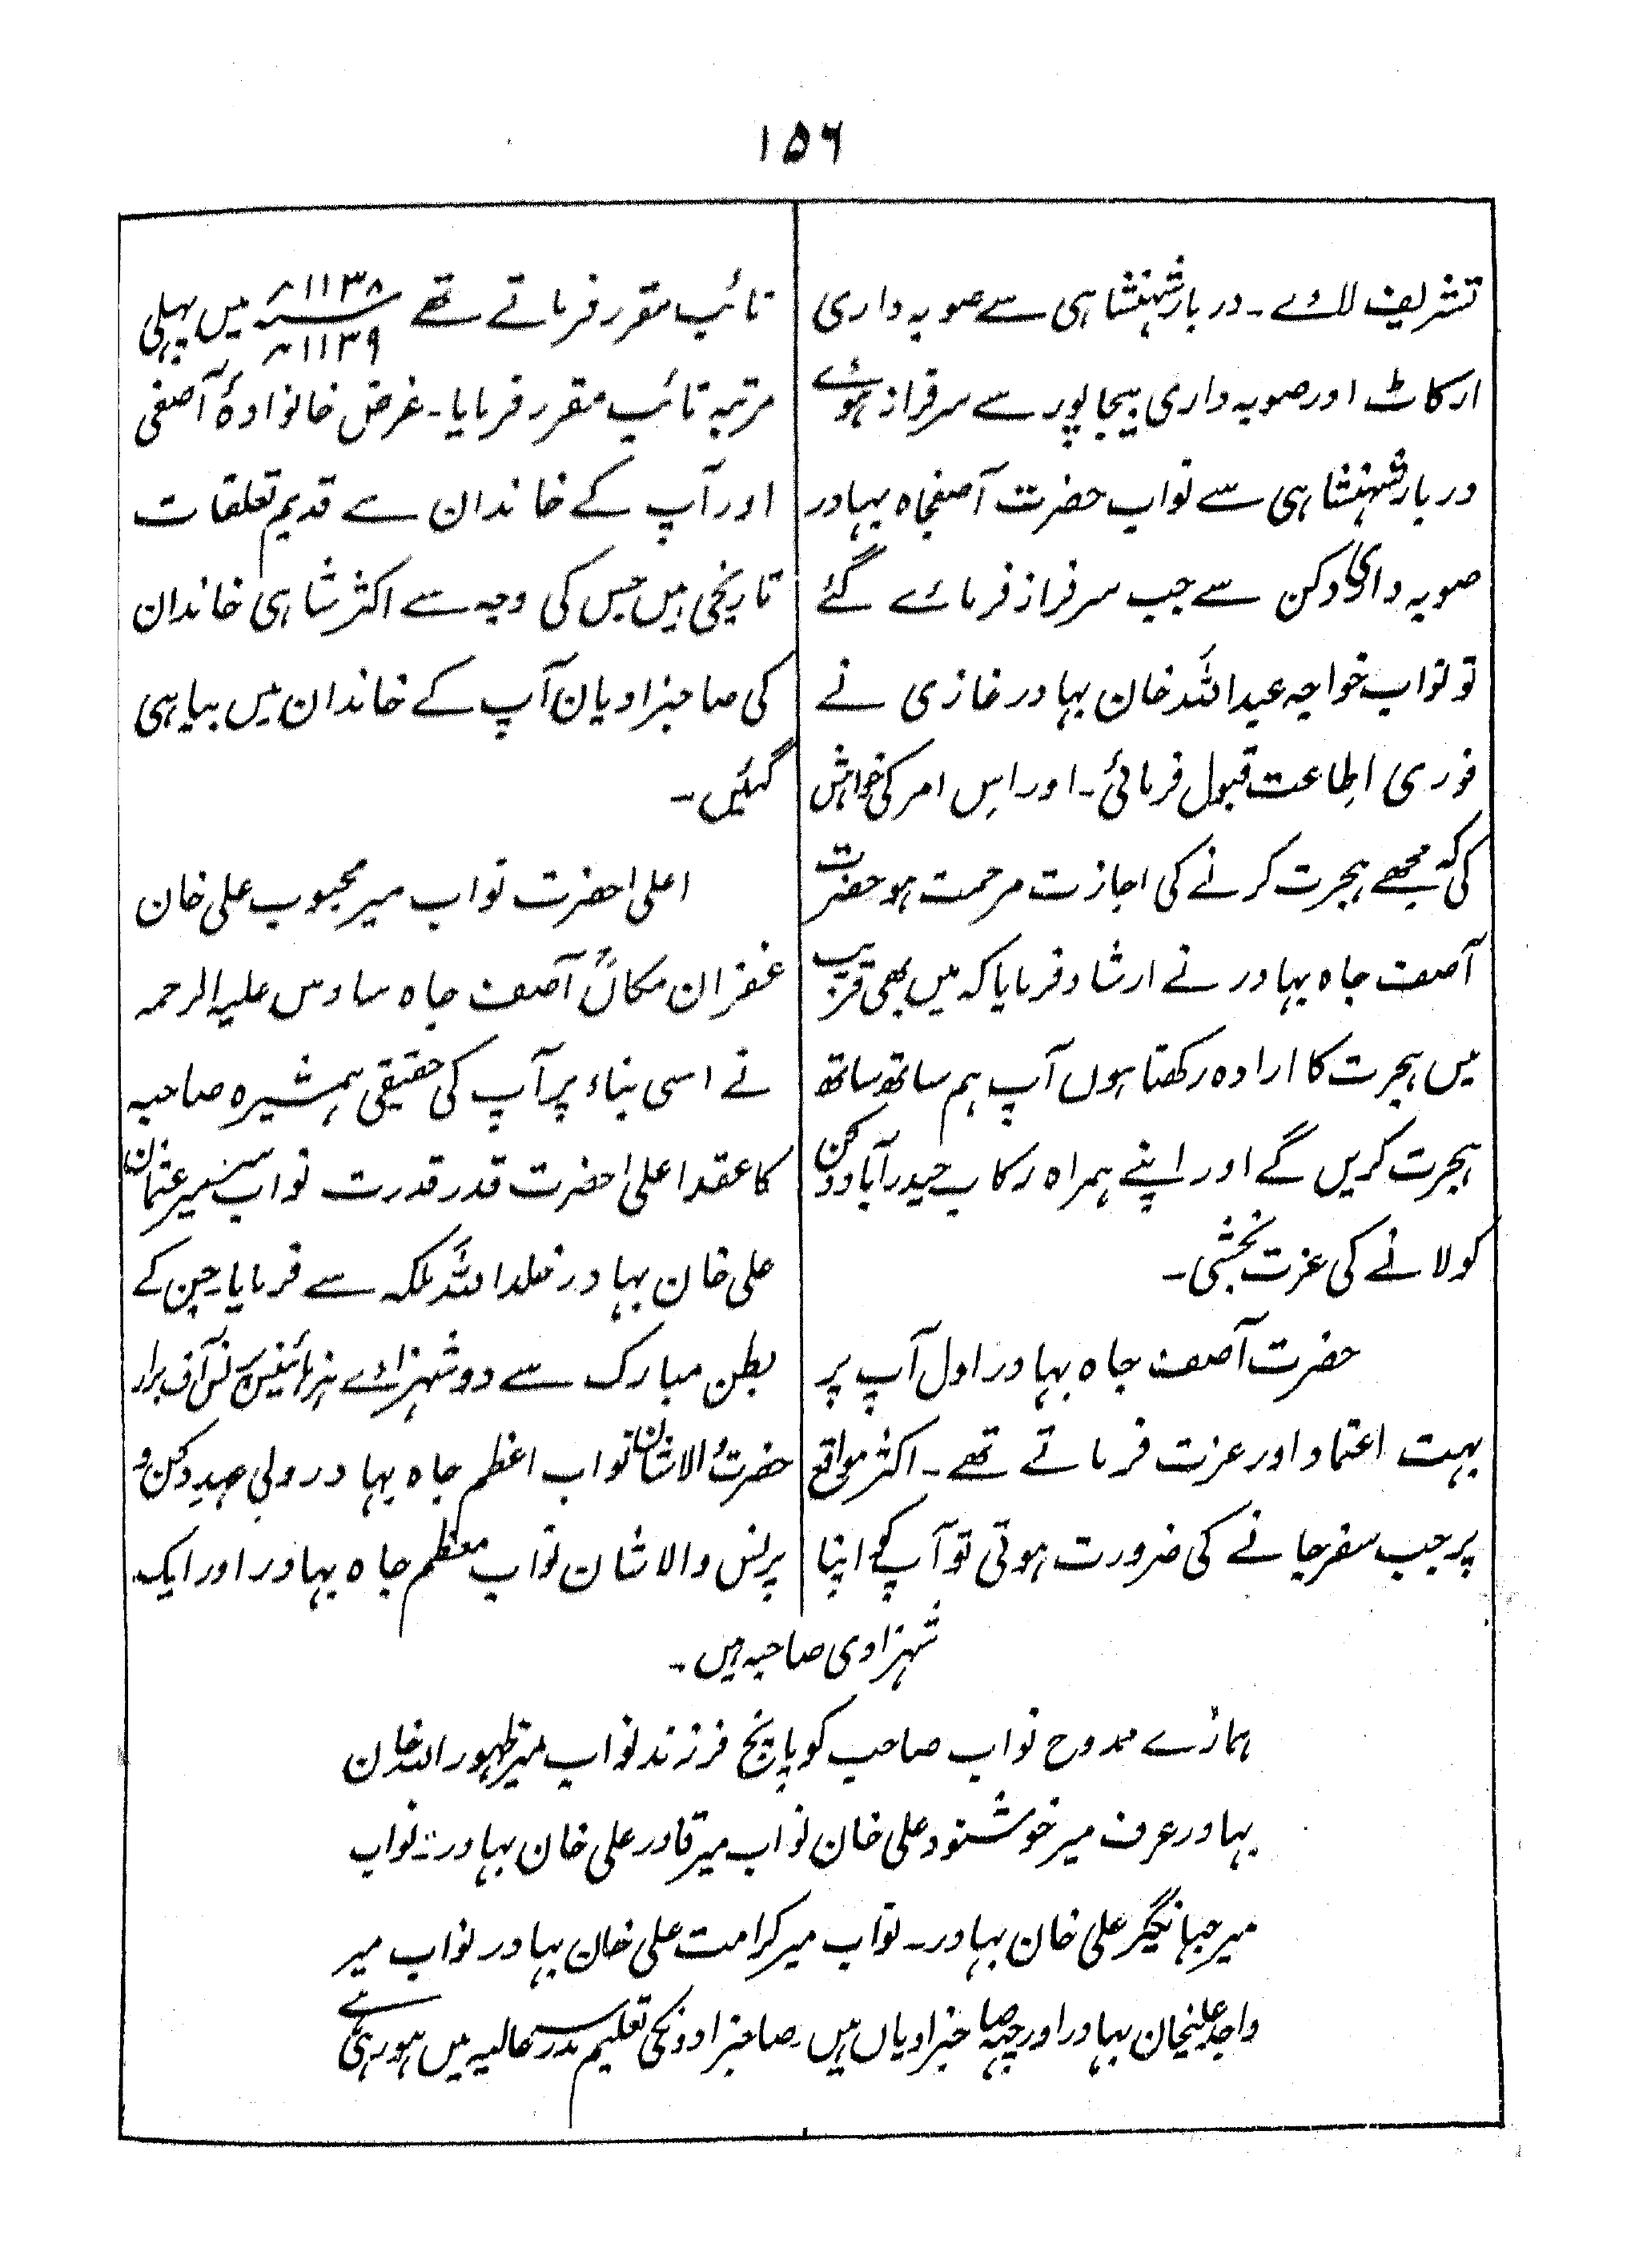 ۱۵۶
تشریف لائے۔ دربار شہنشاہی سے صوبہ داری
ارکاٹ اور صوبہ داری بیجاپور سے سرفراز ہوئے
دربار شہنشاہی سے نواب حضرت آصفجاہ بہادر
صوبہ داری دکن سے جب سرفراز فرمائے گئے
تو نواب خواجہ عبداللہ خان بہادر غازی نے
فوری اطاعت قبول فرمائی۔ اور اِس امر کی خواہش
کی کہ مجھے ہجرت کرنے کی اجازت مرحمت ہو حضرت
آصف جاہ بہادر نے ارشاد فرمایا کہ میں بھی قریب
میں ہجرت کا ارادہ رکھتا ہوں آپ ہم ساتھ ساتھ
ہجرت کریں گے اور اپنے ہمراہ رکاب حیدرآباد دکن
کو لانے کی عزت بخشی۔
حضرت آصف جاہ بہادر اول آپ پر
بہت اعتماد اور عزت فرماتے تھے۔ اکثر مواقع
پر جب سفر جانے کی ضرورت ہوتی تو آپ کو اپنا
نائب مقرر فرماتے تھے ۱۱۳۸؁ ۱۱۳۹؁ میں پہلی
مرتبہ نائب مقرر فرمایا۔ غرض خانوادۂ آصفی
اور آپ کے خاندان سے قدیم تعلقات
تاریخی ہیں جس کی وجہ سے اکثر شاہی خاندان
کی صاحبزادیان آپ کے خاندان میں بیاہی
گئیں۔
اعلیٰحضرت نواب میر محبوب علی خان
غفران مکانؒ آصف جاہ سادس علیہ الرحمہ
نے اسی بناء پر آپ کی حقیقی ہمشیرہ صاحبہ
کا عقد اعلیٰحضرت قدر قدرت نواب میر عثمان
علی خان بہادر خلد اللہ ملکہ سے فرمایا۔ جن کے
بطن مبارک سے دو شہزادے ہز ہائینس پرنس آف برار
حضرت والاشان نواب اعظم جاہ بہادر ولی عہد دکن و
پرنس والاشان نواب معظم جاہ بہادر اور ایک
شہزادی صاحبہ ہیں۔
ہمارے ممدوح نواب صاحب کو پانچ فرزند نواب میر ظہور اللہ خان
بہادر عرف میر خوشنود علی خان نواب میر قادر علی خان بہادر۔ نواب
میر جہانگیر علی خان بہادر۔ نواب میر کرامت علی خان بہادر نواب میر
واجد علیخان بہادر اور چھ صاحبزادیاں ہیں۔ صاحبزادونکی تعلیم مدرسہ عالیہ میں ہو رہی ہے